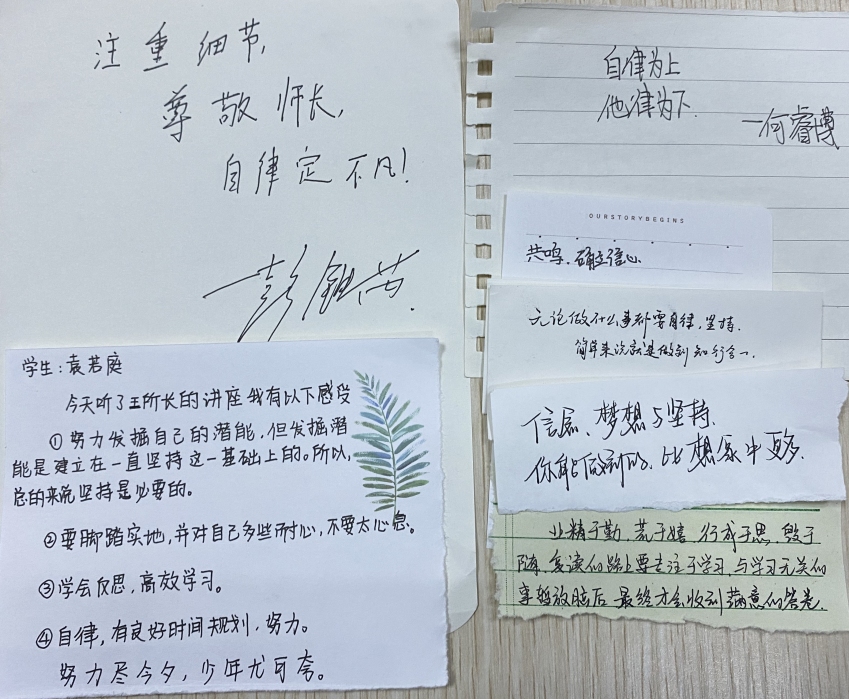 注重细节,
尊敬师长,
自律定不凡!
学生:袁若庭
今天听了王所长的讲座我有以下感受
①努力发掘自己的潜能,但发掘潜
能是建立在一直坚持这一基础上的。所以,
总的来说坚持是必要的。
②要脚踏实地,并对自己多些耐心,不要太心急。
③学会反思,高效学习。
④自律,有良好时间规划,努力。
努力尽今夕,少年尤可夸。
自律为上
他律为下
—何睿博
OURSTORYBEGINS
共鸣、确立信心
无论做什么事都要自律,坚持.
简单来说就是做到知行合一.
信念、梦想与坚持.
你能做到的,比想象中更多.
业精于勤,荒于嬉,行成于思,毁于
随,复读的路上要专注于学习,与学习无关的
事暂放脑后 最终才会收到满意的答卷.